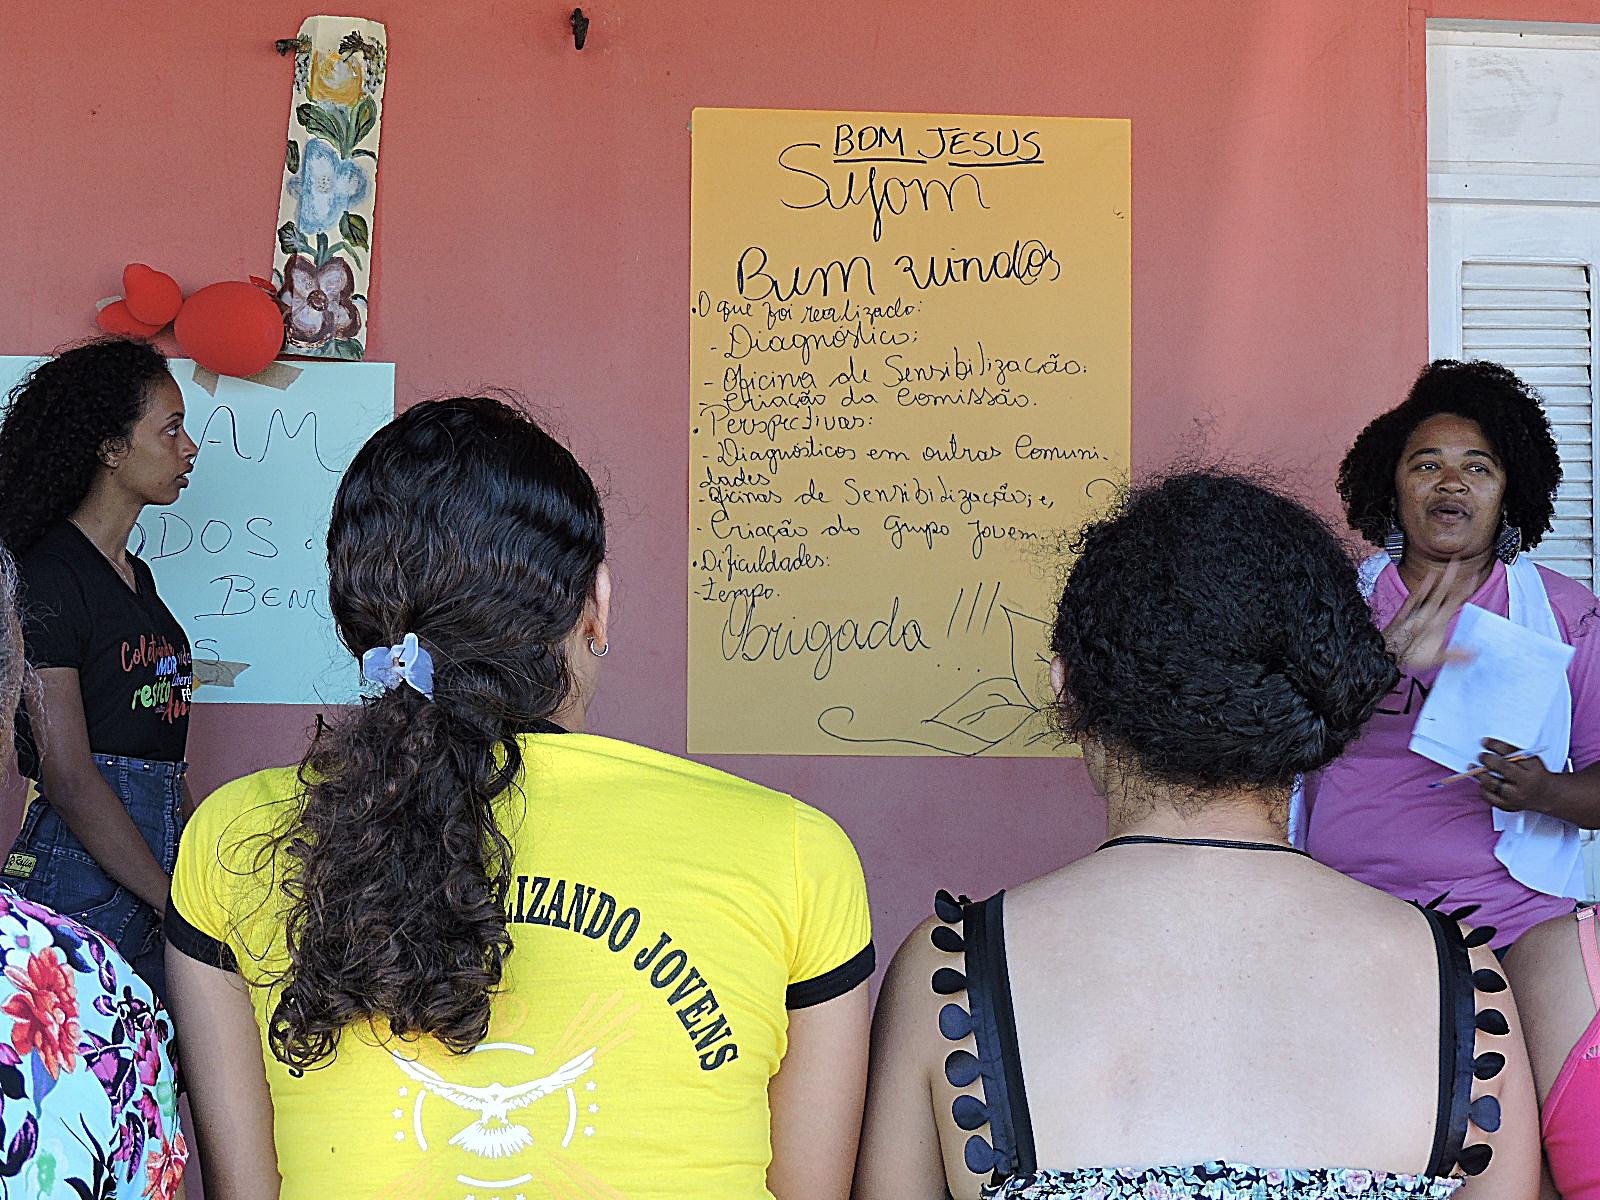 BOM JESUS
Sujam
Bem vind@s
• O que foi realizado:
- Diagnóstico;
- Oficina de Sensibilização.
- Criação da Comissão.
• Perspectivas:
- Diagnósticos em outras Comuni-
dades
- Oficinas de Sensibilização; e,
- Criação do Grupo Jovem.
• Dificuldades:
- Tempo.
Obrigada !!!
...
AM
ODOS
BEM
S
LIZANDO JOVENS
resist